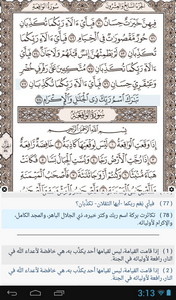 فِيهِنَّ خَيْرَٰتٌ حِسَانٌ فَبِأَيِّ ءَالَآءِ رَبِّكُمَا تُكَذِّبَانِ
حُورٌ مَّقْصُورَٰتٌ فِى ٱلْخِيَامِ فَبِأَيِّ ءَالَآءِ رَبِّكُمَا
تُكَذِّبَانِ
فَبِأَيِّ ءَالَآءِ رَبِّكُمَا تُكَذِّبَانِ مُتَّكِـِٔينَ عَلَىٰ رَفْرَفٍ خُضْرٍ
وَعَبْقَرِىٍّ حِسَانٍ فَبِأَيِّ ءَالَآءِ رَبِّكُمَا تُكَذِّبَانِ
تَبَٰرَكَ ٱسْمُ رَبِّكَ ذِى ٱلْجَلَٰلِ وَٱلْإِكْرَامِ
سُورَةُ الوَاقِعَةِ
بِسْمِ ٱللَّهِ ٱلرَّحْمَٰنِ ٱلرَّحِيمِ
(77) فبأي نِعَم ربكما -أيها الثقلان- تكذِّبان؟
(78) تكاثرت بركة اسم ربك وكثر خيره، ذي الجلال الباهر، والمجد الكامل، والإكرام لأوليائه.
(1) إذا قامت القيامة، ليس لقيامها أحد يكذِّب به، هي خافضة لأعداء الله في النار، رافعة لأوليائه في الجنة.
(2) إذا قامت القيامة، ليس لقيامها أحد يكذِّب به، هي خافضة لأعداء الله في النار، رافعة لأوليائه في الجنة.
3:13